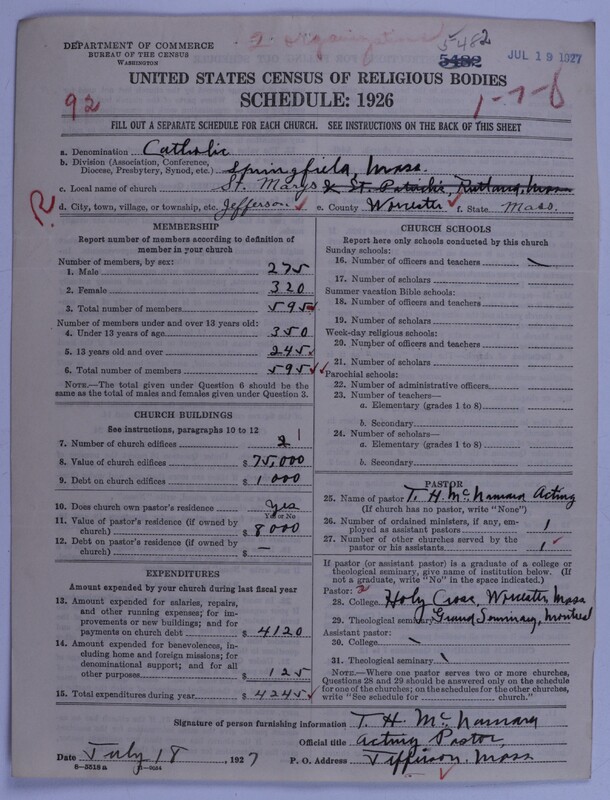 5482
5482
JUL 19 1927
DEPARTMENT OF COMMERCE
BUREAU OF THE CENSUS
WASHINGTON
UNITED STATES CENSUS OF RELIGIOUS BODIES
92
SCHEDULE: 1926
1-7-
FILL OUT A SEPARATE SCHEDULE FOR EACH CHURCH. SEE INSTRUCTIONS ON THE BACK OF THIS SHEET
a. Denomination Catholic
b. Division (Association, Conference,
Diocese, Presbytery, Synod, etc.) Springfield, Mass.
c. Local name of church St. Marys & St. Patricks, Rutland, Mass
R
d. City, town, village, or township, etc. Jefferson e. County Worcester f. State Mass.
MEMBERSHIP
Report number of members according to definition of
member in your church
Number of members, by sex:
1. Male 275
2. Female 320
3. Total number of members 595
Number of members under and over 13 years old:
4. Under 13 years of age 350
5. 13 years old and over 245
6. Total number of members 595
NOTE.—The total given under Question 6 should be
the same as the total of males and females given under Question 3.
CHURCH BUILDINGS
See instructions, paragraphs 10 to 12
7. Number of church edifices 2 1
8. Value of church edifices $ 75,000
9. Debt on church edifices $ 1000
10. Does church own pastor's residence? Yes
Yes or No
11. Value of pastor's residence (if owned by
church) $ 8000
12. Debt on pastor's residence (if owned by
church) $ —
EXPENDITURES
Amount expended by your church during last fiscal year
13. Amount expended for salaries, repairs,
and other running expenses; for im-
provements or new buildings; and for
payments on church debt $ 4120
14. Amount expended for benevolences, in-
cluding home and foreign missions; for
denominational support; and for all
other purposes $ 125
15. Total expenditures during year $ 4245
CHURCH SCHOOLS
Report here only schools conducted by this church
Sunday schools:
16. Number of officers and teachers
17. Number of scholars
Summer vacation Bible schools:
18. Number of officers and teachers
19. Number of scholars
Week-day religious schools:
20. Number of officers and teachers
21. Number of scholars
Parochial schools:
22. Number of administrative officers
23. Number of teachers—
a. Elementary (grades 1 to 8)
b. Secondary
24. Number of scholars—
a. Elementary (grades 1 to 8)
b. Secondary
PASTOR
25. Name of pastor T. H. McNamara Acting
(If church has no pastor, write "None")
26. Number of ordained ministers, if any, em-
ployed as assistant pastors 1
27. Number of other churches served by the
pastor or his assistants 1
If pastor (or assistant pastor) is a graduate of a college or
theological seminary, give name of institution below. (If
not a graduate, write "No" in the space indicated.)
Pastor: 2
28. College Holy Cross Worcester Mass
29. Theological seminary Grand Seminary, Montreal
Assistant pastor:
30. College
31. Theological seminary
NOTE.—Where one pastor serves two or more churches,
Questions 28 and 29 should be answered only on the schedule
for one of the churches; on the schedules for the other churches,
write "See schedule for church."
Signature of person furnishing information T. H. McNamara
Official title Acting Pastor
Date July 18, 1927 P. O. Address Jefferson. Mass
8—5518 a